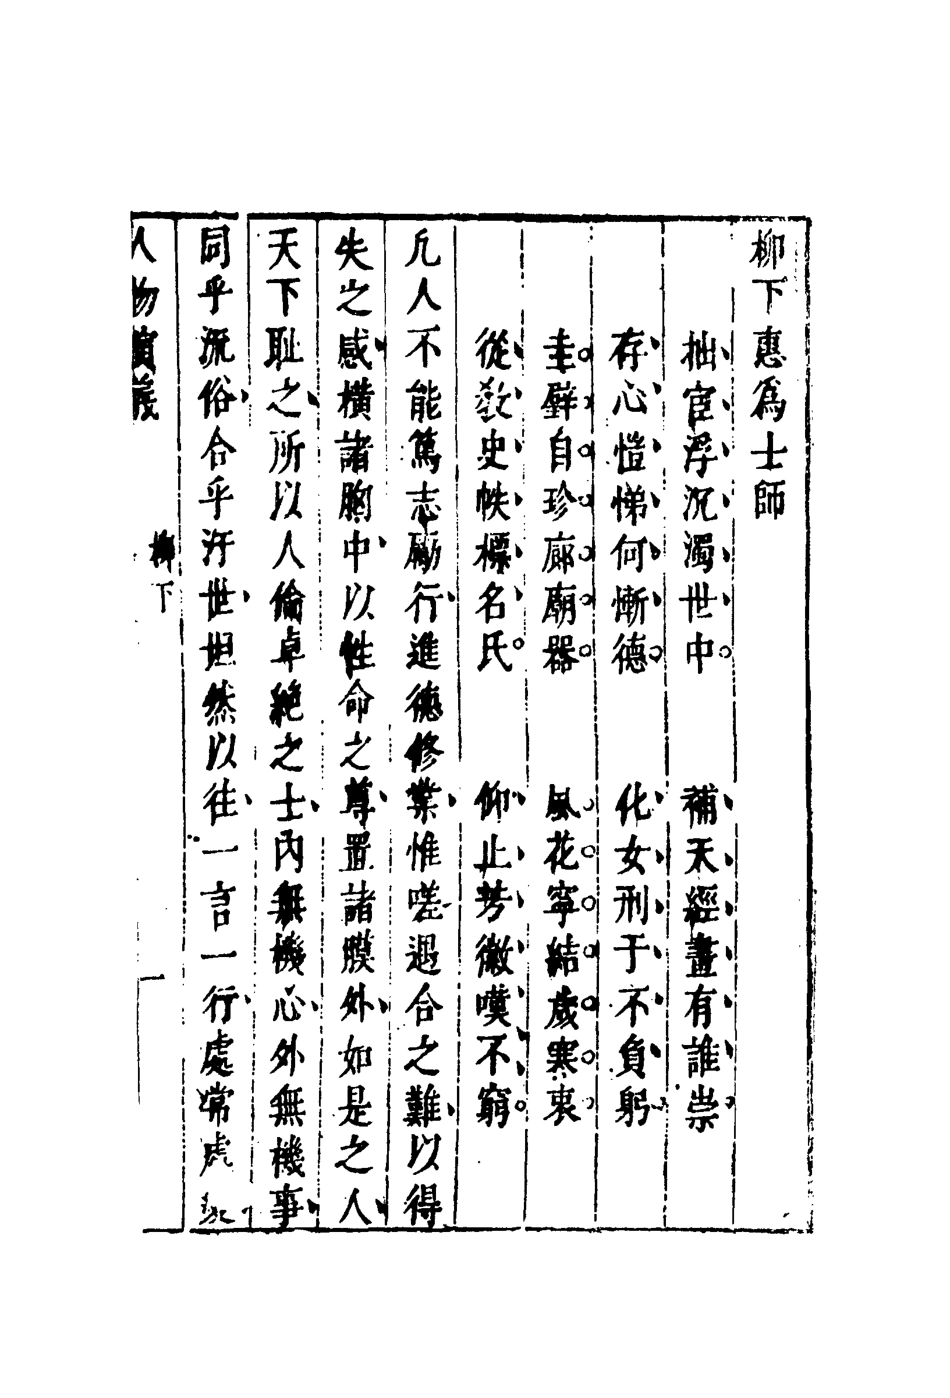 柳下惠爲士師
拙宦浮沉濁世中 補天經畫有誰崇
存心愷悌何慚德 化女刑于不負躬
圭璧自珍廊廟器 風花寧結歲寒衷
從教史帙標名氏 仰止芳徽嘆不窮
凢人不能篤志勵行進德修業惟嗟遇合之難以得
失之感橫諸胸中以性命之尊置諸膜外如是之人
天下耻之所以人倫卓絶之士內無機心外無機事
同乎流俗合乎汙世坦然以往一言一行處常處
人物演義
柳下
一